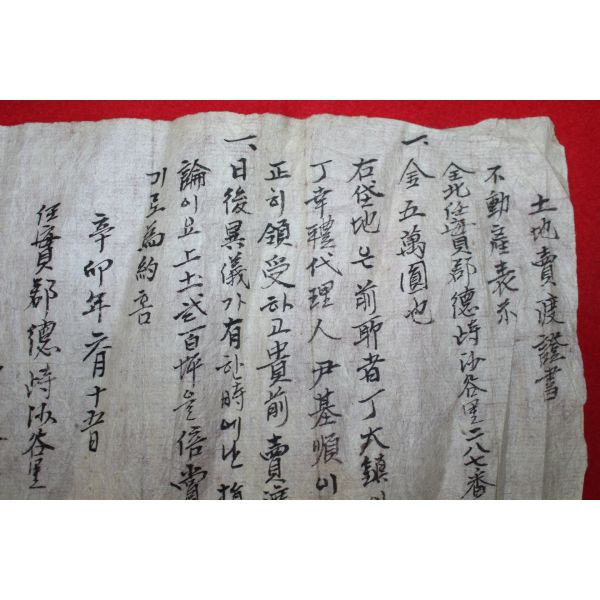 土地賣渡證書
不動産表示
全北任實郡德峙沙谷里二八七番
一、金五萬圓也
右垈地는前所有者丁大鎭
丁幸禮代理人尹基順이
正히領受하고貴前賣渡
一、日後異儀가有한時에난
論이요上土貳百坪을倍當
기로為約홈
辛卯年六月十五日
任實郡德峙沙谷里